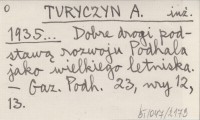 0 TURYCZYN A. inż.
1935... Dobre drogi pod-
stawą rozwoju Podhala
jako wielkiego letniska.
- Gaz. Podh. 23, nry 12,
13.